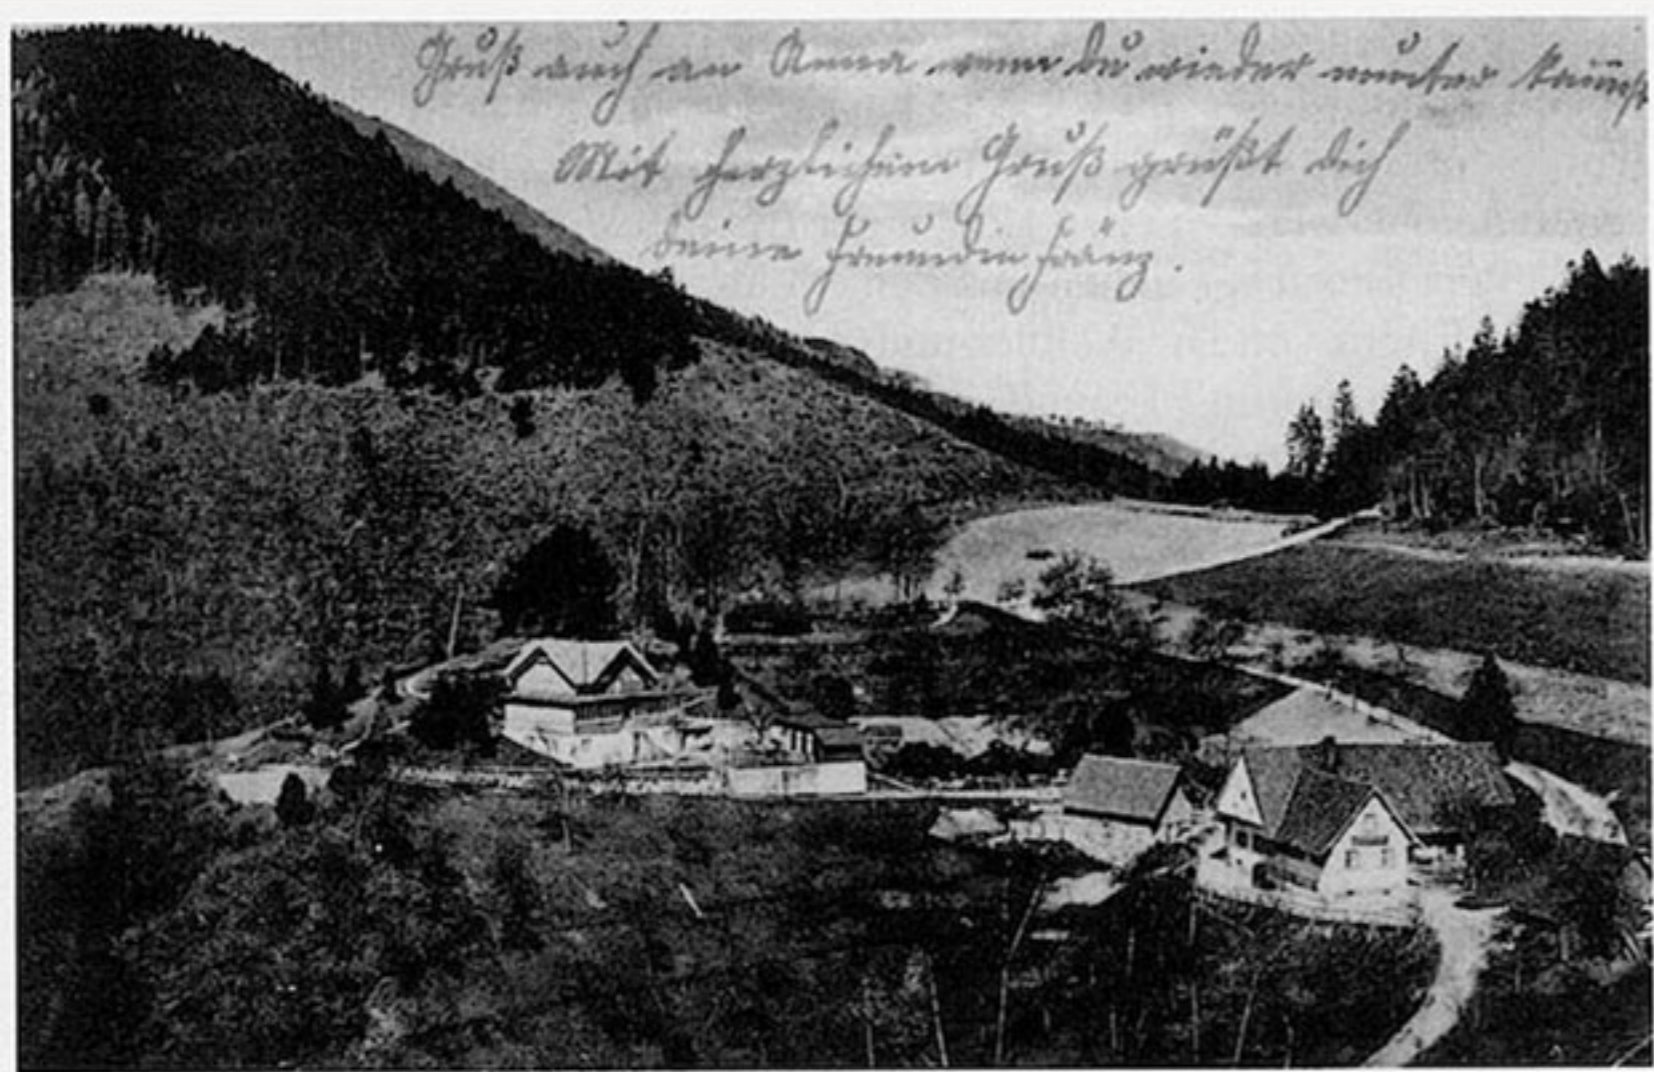 Gruß auch an Anna wenn Du wieder munter
Mit herzlichem Gruß grüßt Dich
deine Freundin Fränz.